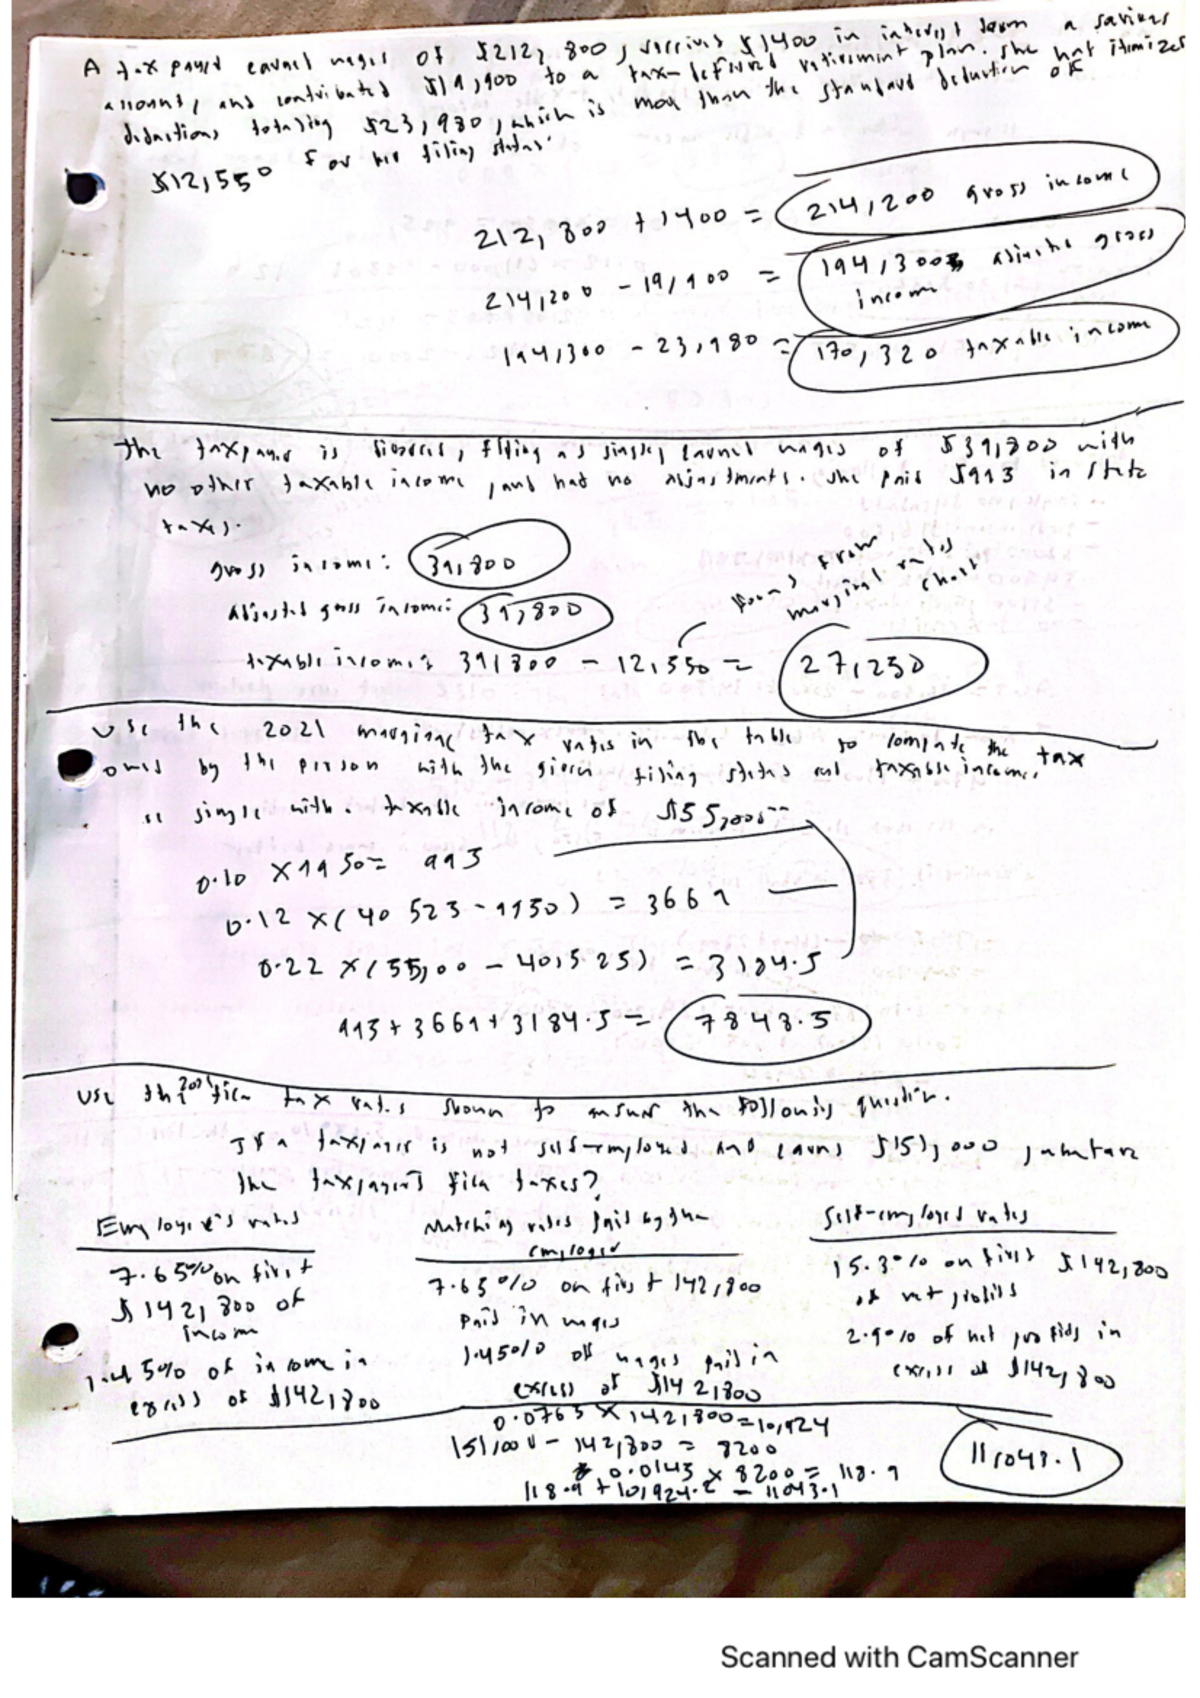 A tax payer earned wages of $212,800, received $1400 in interest from a savings
account, and contributed $19,900 to a tax-deferred retirement plan. she had itemized
deductions totaling $23,980, which is more than the standard deduction of
$12,550 for her filing status.
212,800 + 1400 = 214,200 gross income
214,200 - 19,900 = 194,300 adjusted gross
income
194,300 - 23,980 = 170,320 taxable income
The taxpayer is divorced, filing as single, earned wages of $39,800 with
no other taxable income, and had no adjustments. she paid $993 in state
taxes.
gross income: 39,800
adjusted gross income: 39,800
from
marginal rates
chart
taxable income: 39,800 - 12,550 = 27,250
use the 2021 marginal tax rates in the table to compute the tax
owed by the person with the given filing status and taxable income.
single with taxable income of $55,000
0.10 x 9950 = 995
0.12 x (40 525 - 9950) = 3669
0.22 x (55,00 - 40,525) = 3184.5
995 + 3669 + 3184.5 = 7848.5
use the 2021 fica tax rates shown to answer the following question.
If a taxpayer is not self-employed and earns $151,000, what are
the taxpayer's fica taxes?
Employee's rates
Matching rates paid by the
employer
self-employed rates
7.65% on first
$142,800 of
income
1.45% of income in
excess of $142,800
7.65% on first 142,800
paid in wages
1.45% of wages paid in
excess of $142,800
15.3% on first $142,800
of net profits
2.9% of net profits in
excess of $142,800
0.0765 x 142,800 = 10,924
151,000 - 142,800 = 8200
0.0145 x 8200 = 118.9
118.9 + 10,924.2 = 11043.1
11,043.1
Scanned with CamScanner